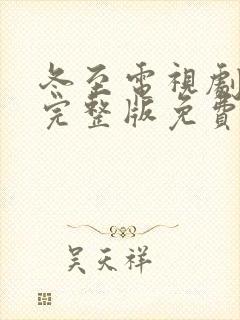 冬至電視劇
完整版免費
吴天祥